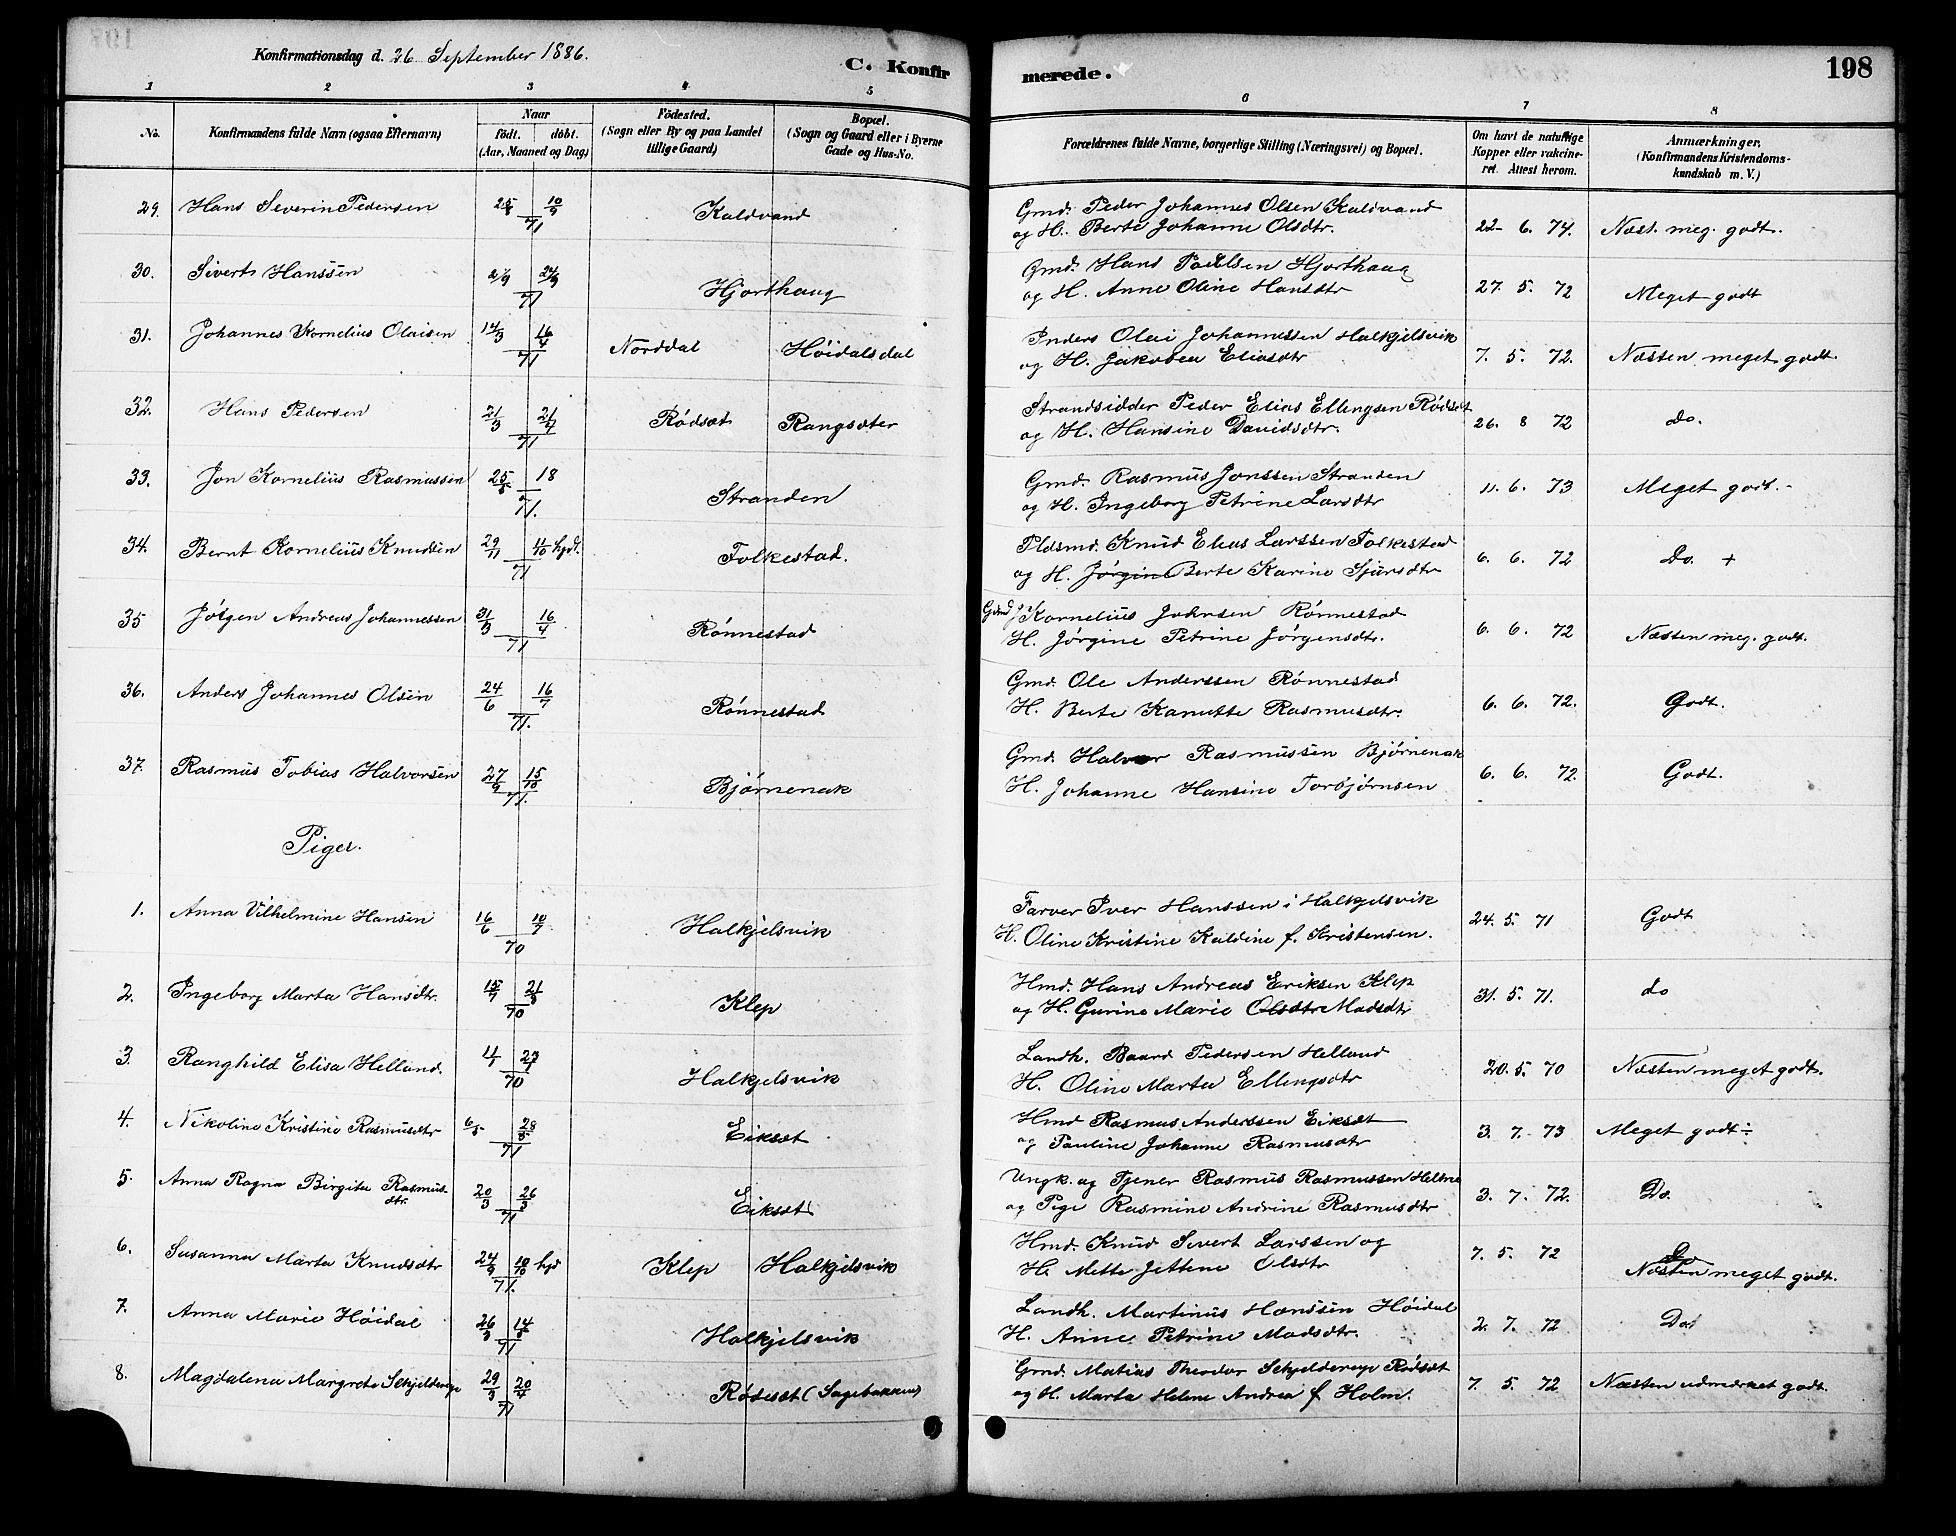 Konfirmationsdag d. 26 September 1886.
C. Konfirmerede.
198
1 2 3 4 5 6 7 8
No. | Konfirmandens fulde Navn (ogsaa Efternavn) | Naar födt. döbt. (Aar, Maaned og Dag) | Födested. (Sogn eller By og paa Landet tillige Gaard) | Bopæl. (Sogn og Gaard eller i Byerne Gade og Hus-No. | Forældrenes fulde Navne, borgerlige Stilling (Næringsvei) og Bopæl. | Om havt de naturlige Kopper eller vakcineret. Attest herom. | Anmærkninger. (Konfirmandens Kristendomskundskab m. V.)
29. Hans Severin Pedersen 10/9 71 Kaldvand Gmd. Peder Johannes Olsen Kaldvand
og H. Berte Johanne Olsdtr. 22. 6. 74. Næst. meg. godt.
30. Sivert Hanssen 24/9 71 Hjorthaug Gmd. Hans Paulsen Hjorthaug
og H. Anne Oline Hansdtr 27. 5. 72 Meget godt
31. Johannes Kornelius Olaisen 14/3 16/4 71 Norddal Höidalsdal Inders Olai Johannessen Halkjelsvik
og H. Jakobea Eliasdtr 7. 5. 72. Næsten meget godt.
32. Hans Pedersen 21/3 21/4 71 Rödsæt Rangsæter Strandsidder Peder Elias Ellengsen Rödsæt
og H. Hansine Davidsdtr. 26. 8 72 do.
33. Jon Kornelius Rasmussen 18 71. Stranden Gmd. Rasmus Jonssen Stranden
og H. Ingeborg Petrine Larsdtr 11. 6. 73 Meget godt.-
34. Bernt Kornelius Knudsen 29/11 hjdt. 71 Folkestad. Pldsmd. Knud Elias Larssen Folkestad
og H. Jörgine Berte Karine Sjursdtr 6. 6. 72 Do. +
35 Jörgen Andreas Johannessen 31/3 16/4 71 Rönnestad Gmd Kornelius Johnsen Rönnestad
H. Jörgine Petrine Jörgensdtr. 6. 6. 72 Næsten meg. godt.
36. Anders Johannes Olsen 24/6 16/7 71. Rönnestad Gmd. Ole Anderssen Rönnestad
H. Berte Kanutte Rasmusdtr. 6. 6. 72. Godt.
37. Rasmus Tobias Halvorsen 27/9 15/10 71. Bjørnenak Gmd. Halvor Rasmussen Bjørnenak
H. Johanne Hansine Torbjørnsen 6. 6. 72. Godt.
Piger.
1. Anna Vilhelmine Hansen 16/6 10/7 70 Halkjelsvik Farver Iver Hanssen i Halkjelsvik
H. Oline Kristine Kaldine f. Kristensen. 24. 5. 71 Godt
2. Ingeborg Marta Hansdtr. 15/7 21/8 70 Klep Hmd. Hans Andreas Eriksen Klep
og H. Gurine Marie Olsdtr Madsdtr 31. 5. 71. do
3. Ranghild Elisa Helland. 70 Halkjelsvik Landh. Baard Pedersen Helland
H. Oline Marta Ellengsdtr 20. 5. 70 Næsten meget godt.
4. Nikoline Kristine Rasmusdtr 6/5 28/5 71 Eiksæt Hmd Rasmus Anderssen Eiksæt
og Pauline Johanne Rasmusdtr 3. 7. 73 Meget godt ÷
5. Anna Ragna Birgita Rasmusdtr. 20/3 26/3 71 Eiksæt Ungk. og Tjener Rasmus Rasmussen Heltne
og Pige Rasmine Andrine Rasmusdtr 3. 7. 72. Do.
6. Susanna Marta Knudsdtr 24/9 10/10 hjd 71. Klep Halkjelsvik Hmd. Knud Sivert Larssen og
H. Mette Jettene Olsdtr 7. 5. 72 Do Næsten meget godt.
7. Anna Marie Höidal 26/3 14/5 71 Halkjelsvik Landh. Martinus Hanssen Höidal
H. Anne Petrine Madsdtr. 2. 7. 72 Do.
8. Magdalena Margrete Schjelderup 29/3 20/4 71 Rödseet (Sagebakken) Gmd. Matias Theodor Schjelderup Rödsæt
og H. Marta Helene Andrea f Holm. 7. 5. 72 Næsten udmærket godt.